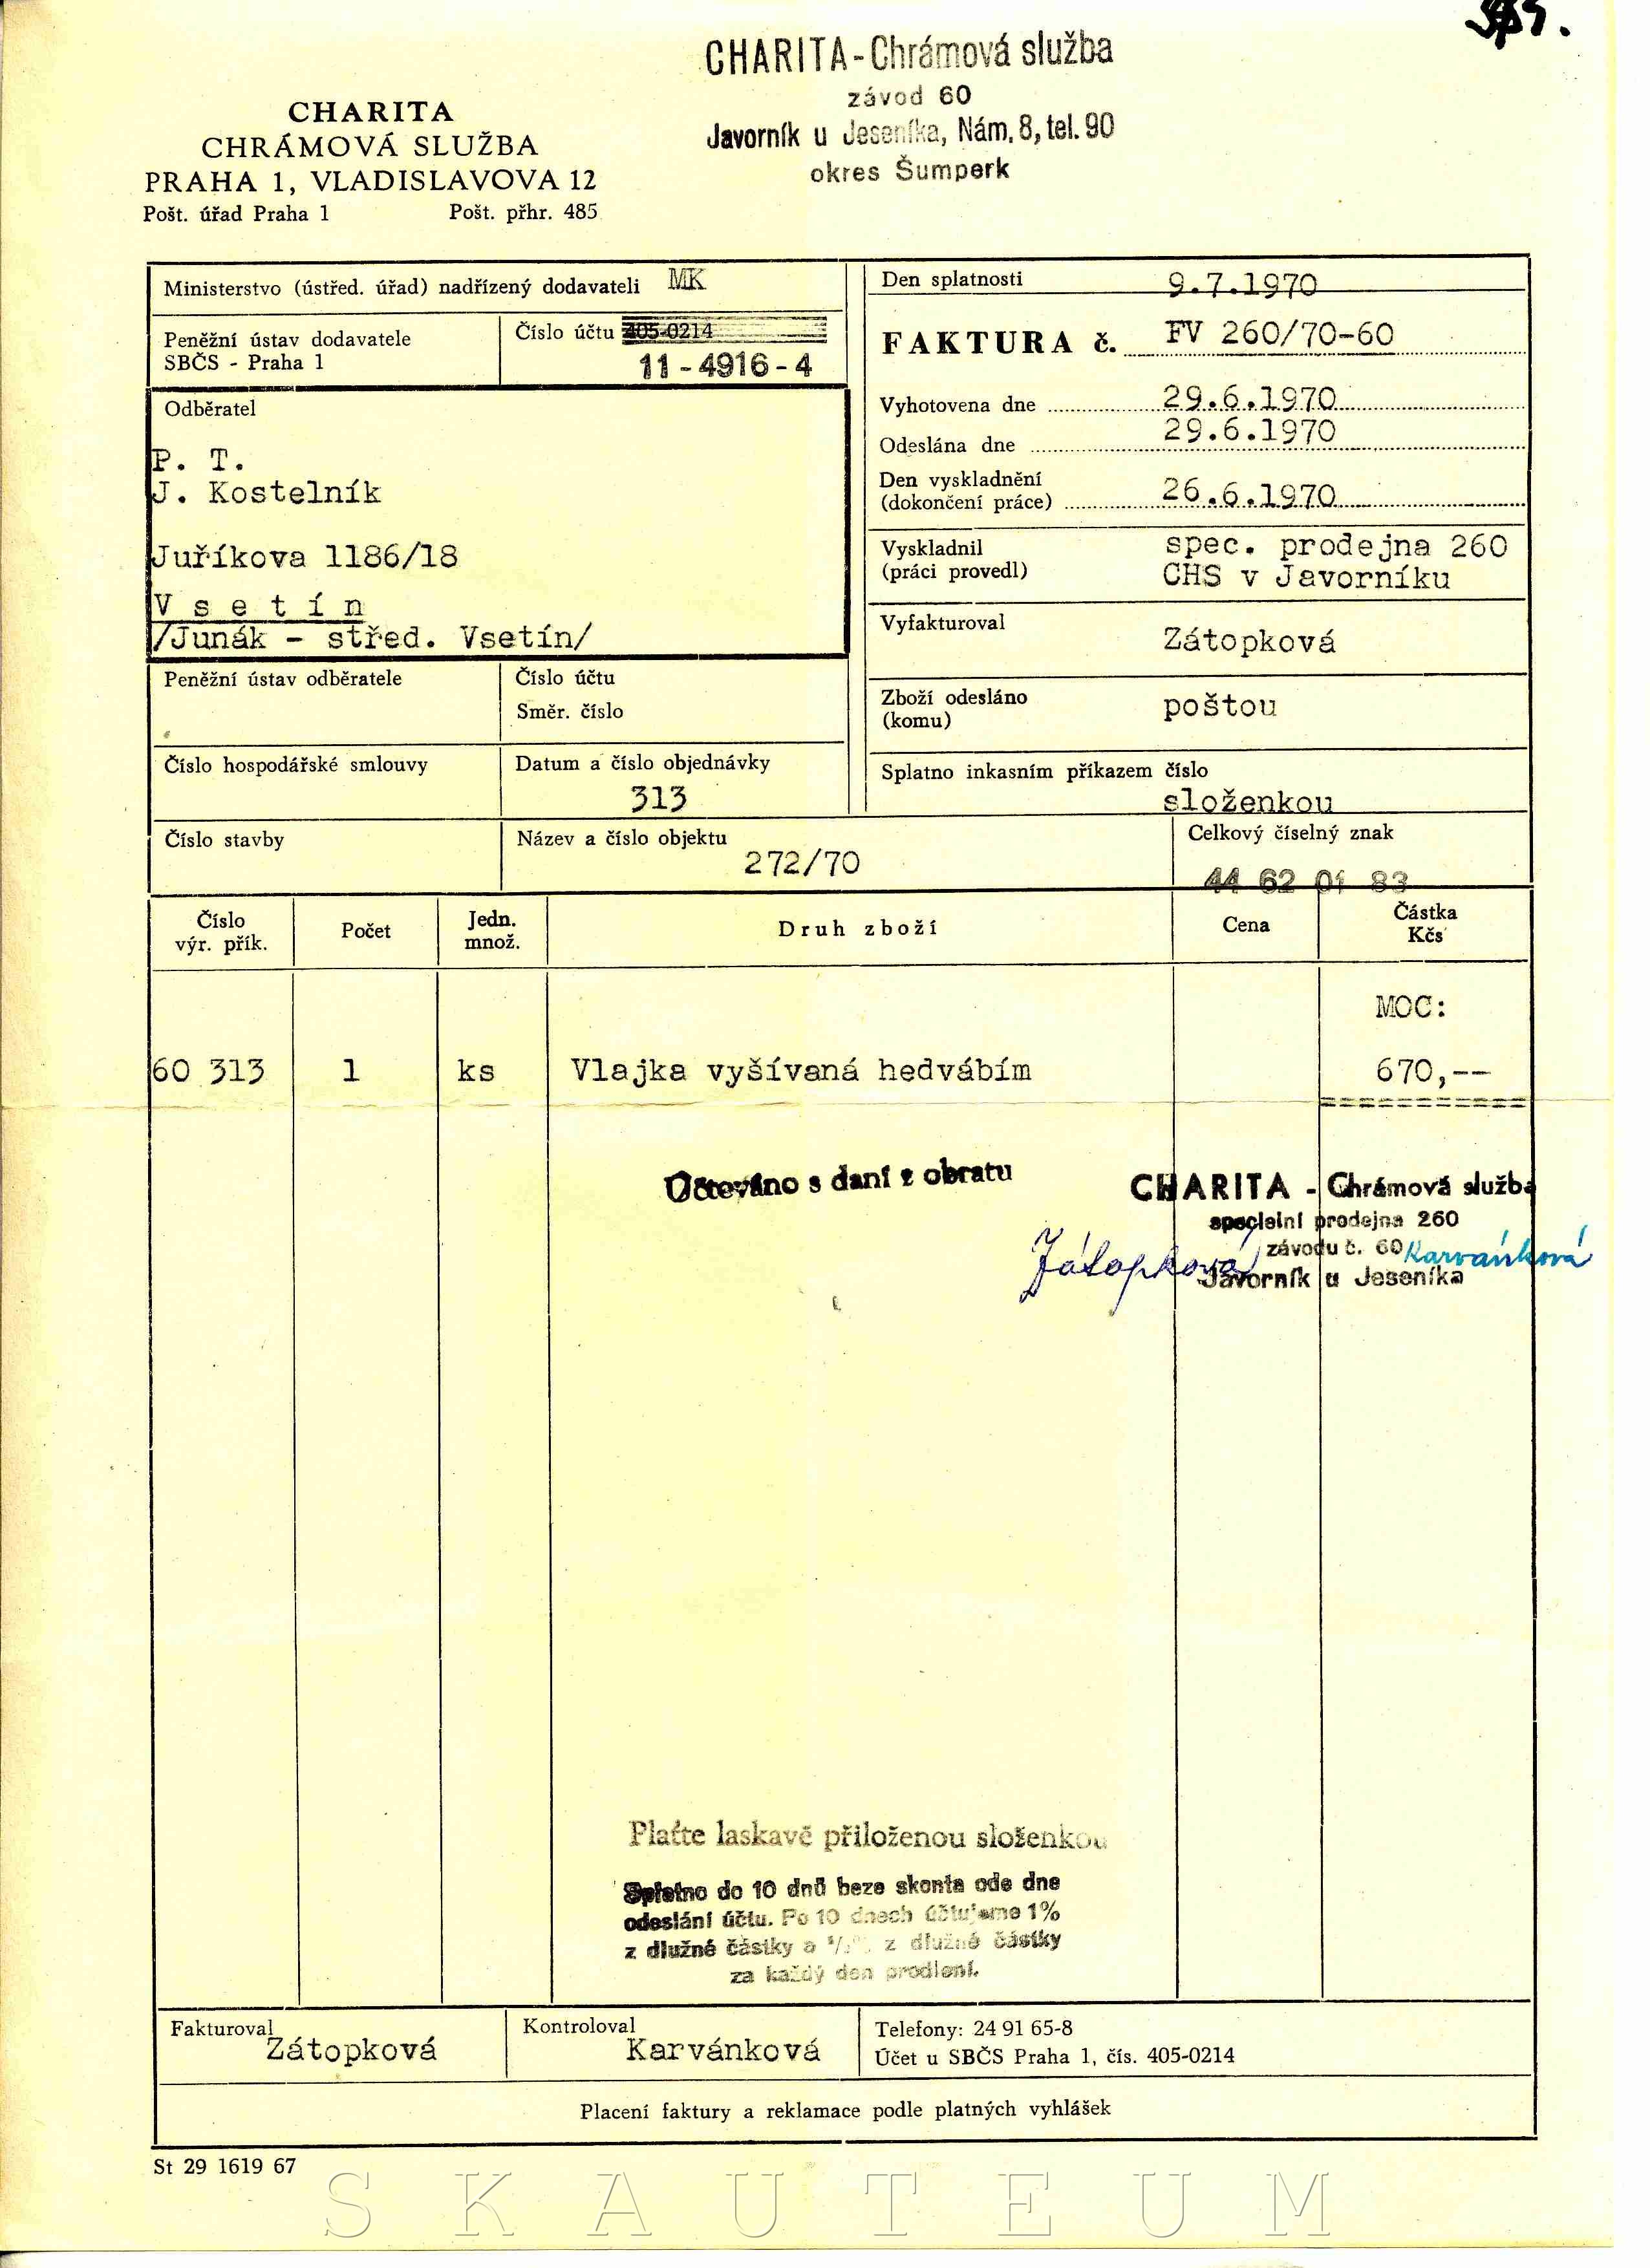 CHARITA - Chrámová služba
závod 60
Javorník u Jeseníka, Nám. 8, tel. 90
okres Šumperk
CHARITA
CHRÁMOVÁ SLUŽBA
PRAHA 1, VLADISLAVOVA 12
Pošt. úřad Praha 1 Pošt. přhr. 485
Ministerstvo (ústřed. úřad) nadřízený dodavateli MK
Peněžní ústav dodavatele
SBČS - Praha 1
Číslo účtu 405-0214
11-4916-4
Odběratel
P. T.
J. Kostelník
Juříkova 1186/18
V s e t í n
/Junák - střed. Vsetín/
Peněžní ústav odběratele
Číslo účtu
Směr. číslo
Číslo hospodářské smlouvy
Datum a číslo objednávky
313
Den splatnosti 9.7.1970
FAKTURA č. FV 260/70-60
Vyhotovena dne 29.6.1970
Odeslána dne 29.6.1970
Den vyskladnění
(dokončení práce) 26.6.1970
Vyskladnil spec. prodejna 260
(práci provedl) CHS v Javorníku
Vyfakturoval Zátopková
Zboží odesláno
(komu) poštou
Splatno inkasním příkazem číslo
složenkou
Číslo stavby
Název a číslo objektu
272/70
Celkový číselný znak
44 62 01 83
Číslo
výr. přík.
Počet
Jedn.
množ.
Druh zboží
Cena
Částka
Kčs
MOC:
60 313 1 ks Vlajka vyšívaná hedvábím 670,--
===========
Účtováno s daní z obratu
CHARITA - Chrámová služba
specielní prodejna 260
závodu č. 60 Karvánková
Zátopková Javorník u Jeseníka
Plaťte laskavě přiloženou složenkou
Splatno do 10 dnů beze skonta ode dne
odeslání účtu. Po 10 dnech účtujeme 1%
z dlužné částky a z dlužné částky
za každý den prodlení.
Fakturoval
Zátopková
Kontroloval
Karvánková
Telefony: 24 91 65-8
Účet u SBČS Praha 1, čís. 405-0214
Placení faktury a reklamace podle platných vyhlášek
St 29 1619 67
SKAUTEUM